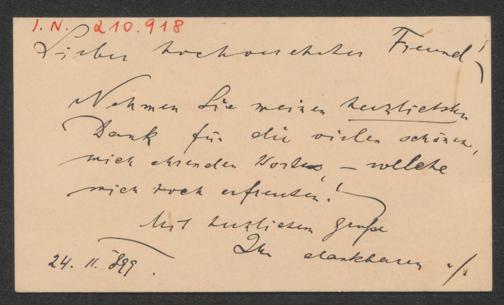 I. N. 210.918
Lieber hochverehrter Freund!
Nehmen Sie meinen herzlichsten
Dank für die vielen schönen,
mich ehrenden Worte, – welche
mich hoch erfreuten!
Mit herzlichem Gruße
Ihr dankbarer
24. 11. 899.